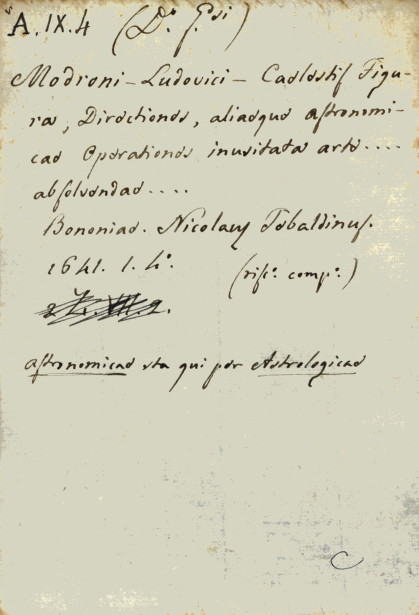 A.IX.4 (D.ª f. Gsi)
Modroni - Ludovici - Caelestis Figu-
ra, Directiones, aliaeque astronomi-
cae Operationes inusitata arte....
absolvendae....
Bononiae. Nicolaus Tebaldinus.
1641. 1. 4º.
(risc.º comp.º)
astronomicae sta qui per Astrologicae